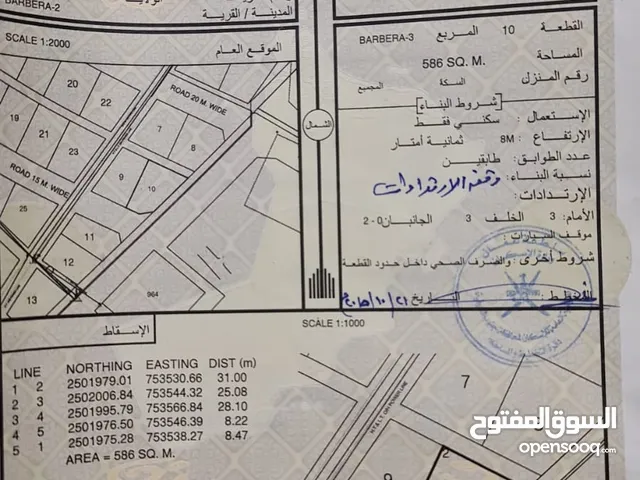 BARBERA-2
المدينة / القرية
SCALE 1:2000
الموقع العام
ROAD 20 M. WIDE
ROAD 15 M. WIDE
22
20
24
21
19
23
7
8
9
10
25
11
12
13
964
الشمال
القطعة : 10 المربع BARBERA-3
المساحة : 586 SQ. M.
رقم المنزل : السكة المجمع
[شروط البناء]
الإستعمال : سكني فقط
الإرتفاع : ثمانية أمتار 8M
عدد الطوابق : طابقين
نسبة البناء : وفقه الارتدادات
الإرتدادات :
الأمام: 3 الخلف 3 الجانبان 0-2
موقف السيارات :
شروط أخرى : والصرف الصحي داخل حدود القطعة
التاريخ
الإسقاط
SCALE 1:1000
LINE NORTHING EASTING DIST (m)
1 2 2501979.01 753530.66 31.00
2 3 2502006.84 753544.32 25.08
3 4 2501995.79 753566.84 28.10
4 5 2501976.50 753546.39 8.22
5 1 2501975.28 753538.27 8.47
AREA = 586 SQ. M.
7
9
2
السوق المفتوح
opensooq.com